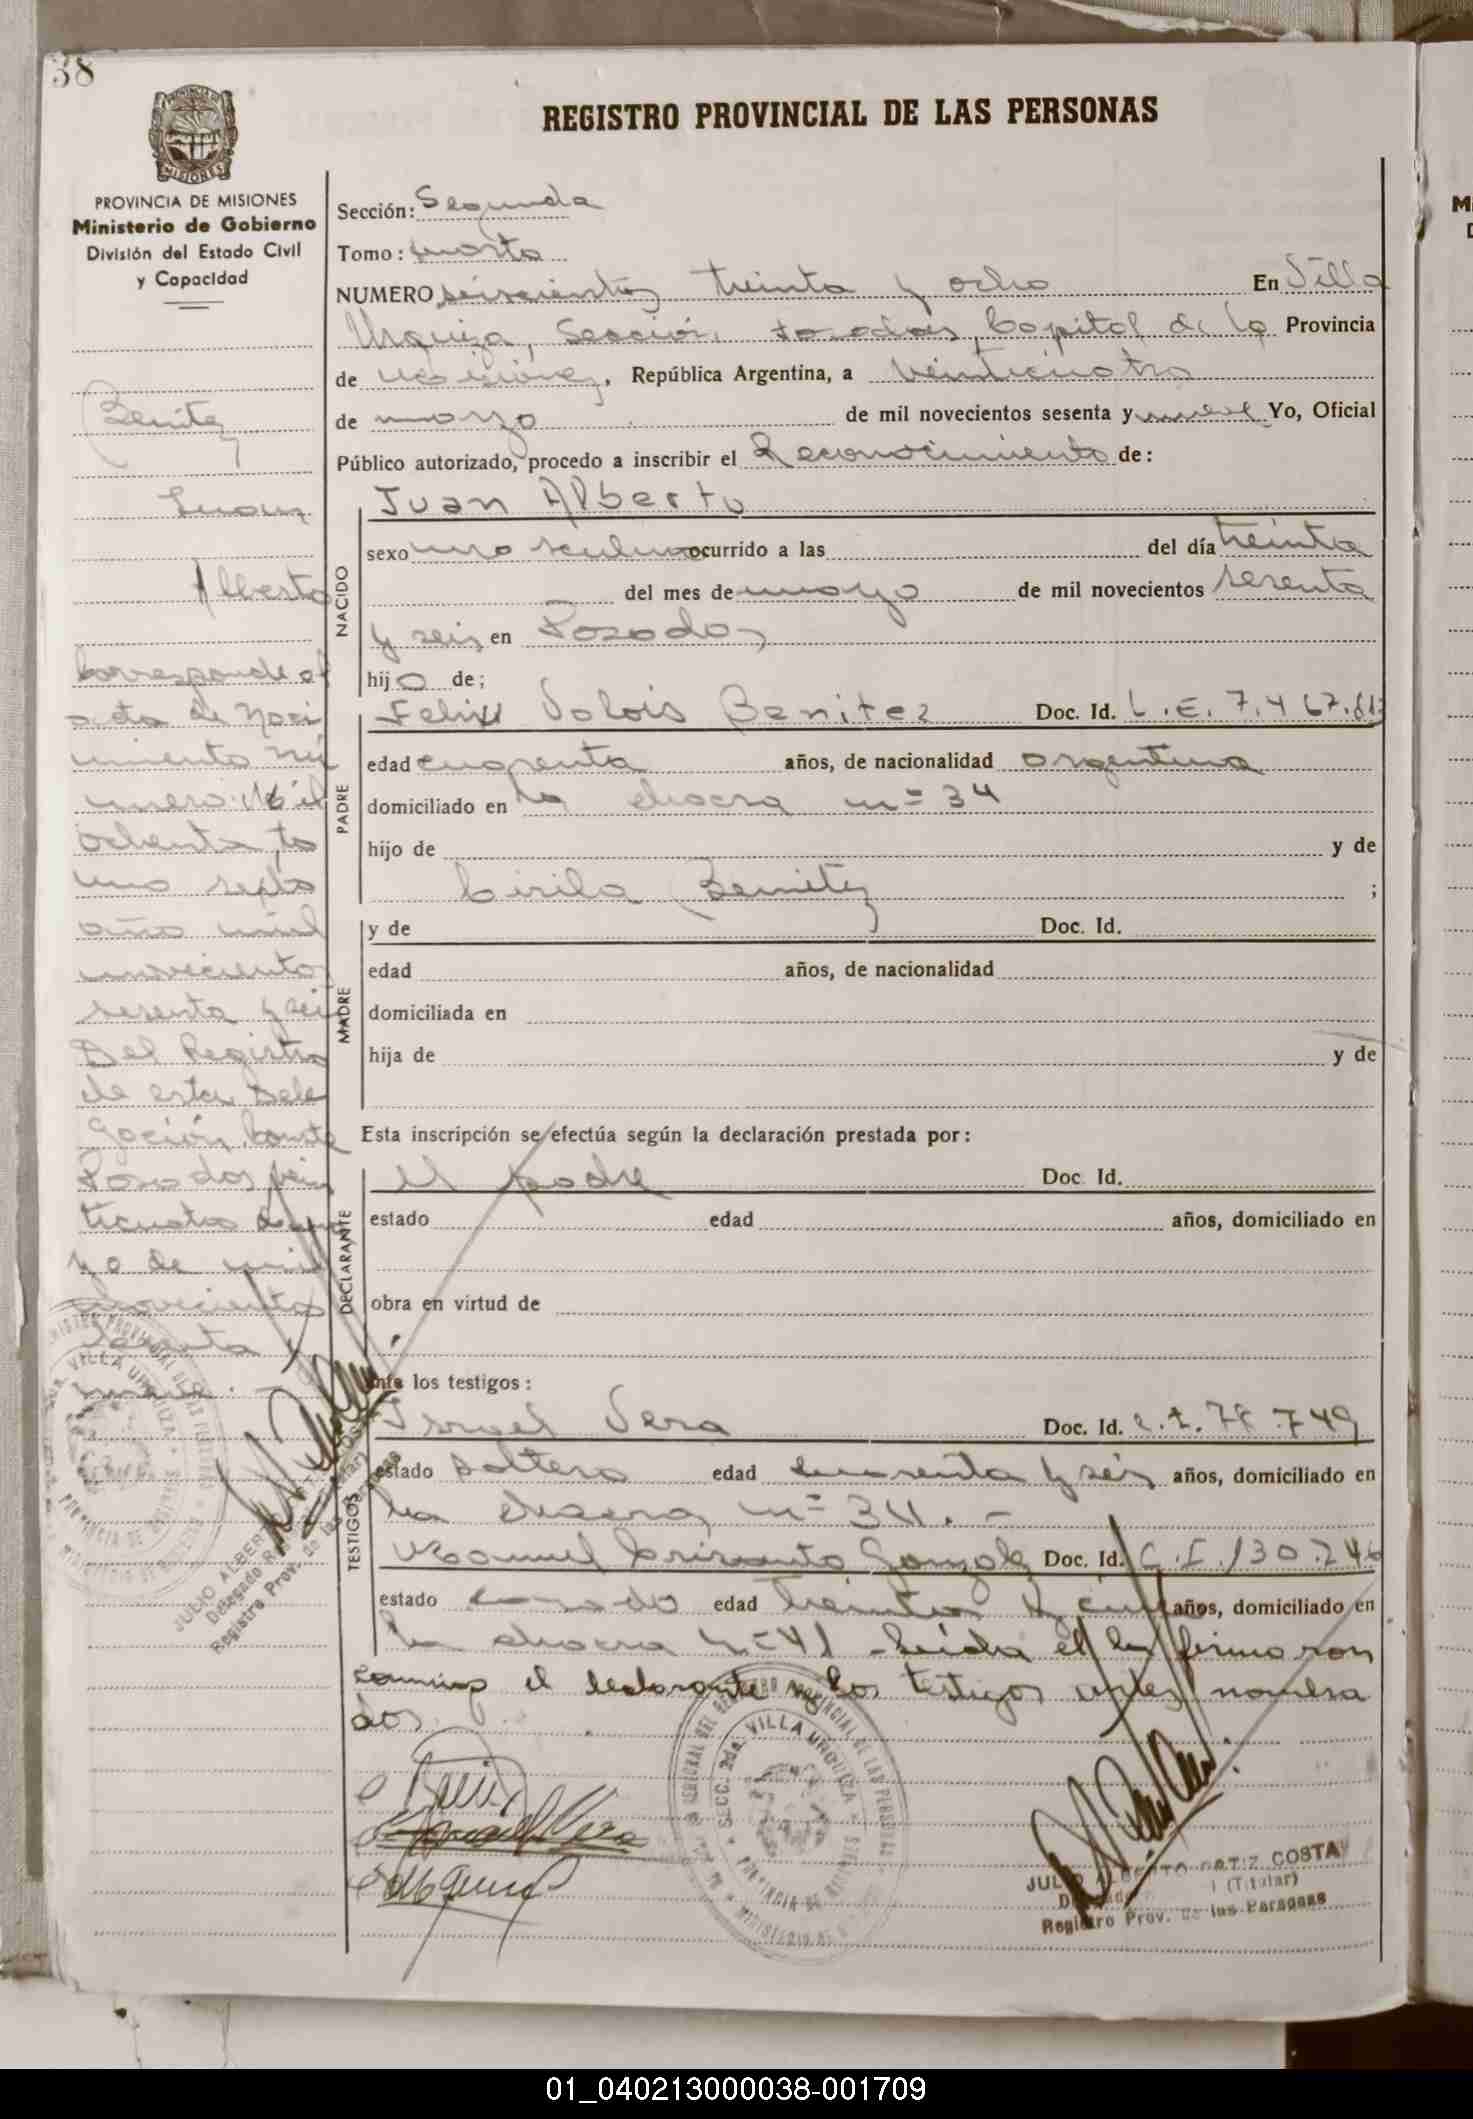 38
REGISTRO PROVINCIAL DE LAS PERSONAS
PROVINCIA DE MISIONES
Ministerio de Gobierno
División del Estado Civil
y Capacidad
Benitez
Juan
Alberto
Corresponde al
acta de naci
miento nú
mero: Mil
ochenta, to
mo sexto
año mil
novecientos
sesenta y seis
Del Registro
de esta Dele
gación. Conste
Posadas, vein
ticuatro de mar
zo de mil
novecientos
sesenta y
nueve.
Sección: Segunda
Tomo: cuarto
NUMERO seiscientos treinta y ocho En Villa
Urquiza, Sección, Posadas, Capital de la Provincia
de Misiones, República Argentina, a veinticuatro
de marzo de mil novecientos sesenta y nueve Yo, Oficial
Público autorizado, procedo a inscribir el Reconocimiento de:
NACIDO
Juan Alberto
sexo masculino ocurrido a las del día treinta
del mes de mayo de mil novecientos sesenta
y seis en Posadas
hijo de;
PADRE
Felix Valois Benitez Doc. Id. L.E. 7.467.
edad cuarenta años, de nacionalidad argentina
domiciliado en la chacra nº 34
hijo de y de
Cirila Benitez ;
MADRE
y de Doc. Id.
edad años, de nacionalidad
domiciliada en
hija de y de
Esta inscripción se efectúa según la declaración prestada por:
DECLARANTE
El padre Doc. Id.
estado edad años, domiciliado en
obra en virtud de
Ante los testigos:
TESTIGOS
Israel Vera Doc. Id. 749
estado soltero edad cuarenta y seis años, domiciliado en
la chacra nº 34. -
Manuel Crisanto Gonzalez Doc. Id. C.I. 130.746
estado casado edad treinta y cinco años, domiciliado en
la chacra nº 41 - Leída el acta firmaron
conmigo el declarante y los testigos antes nombra
dos.
SECC. 2da. VILLA URQUIZA
PROVINCIA DE MISIONES
JULIO ALBERTO ORTIZ COSTA
Delegado (Titular)
Registro Prov. de las Personas
JULIO ALBERTO
Delegado
Registro Prov. de las Personas
01_040213000038-001709